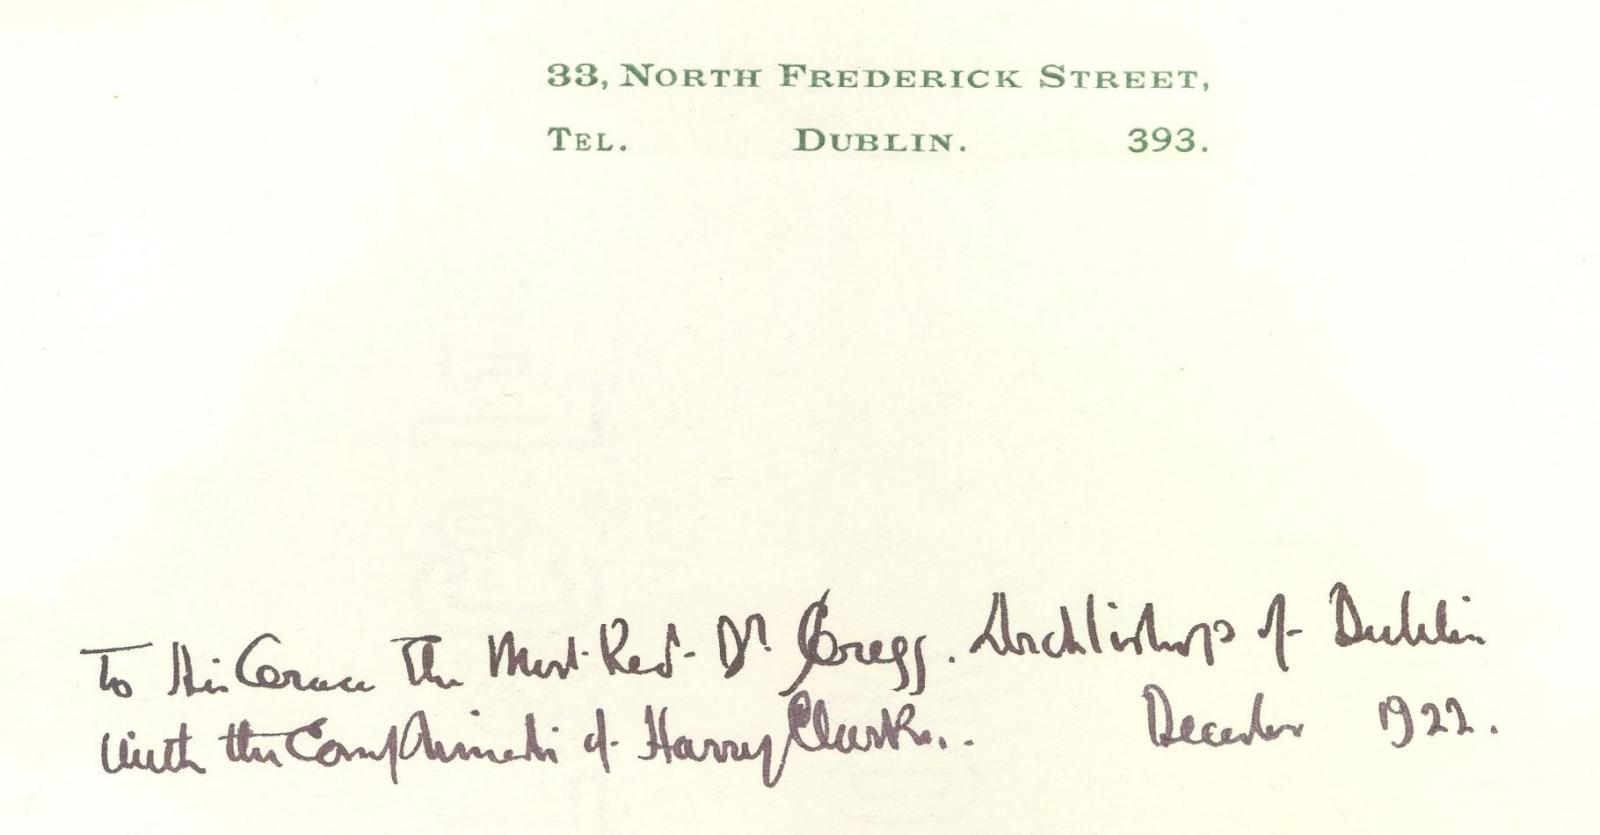 33, NORTH FREDERICK STREET,
TEL. DUBLIN. 393.
To His Grace The Most Revd. Dr. Gregg. Archbishop of Dublin
with the Compliments of Harry Clarke.. December 1922.